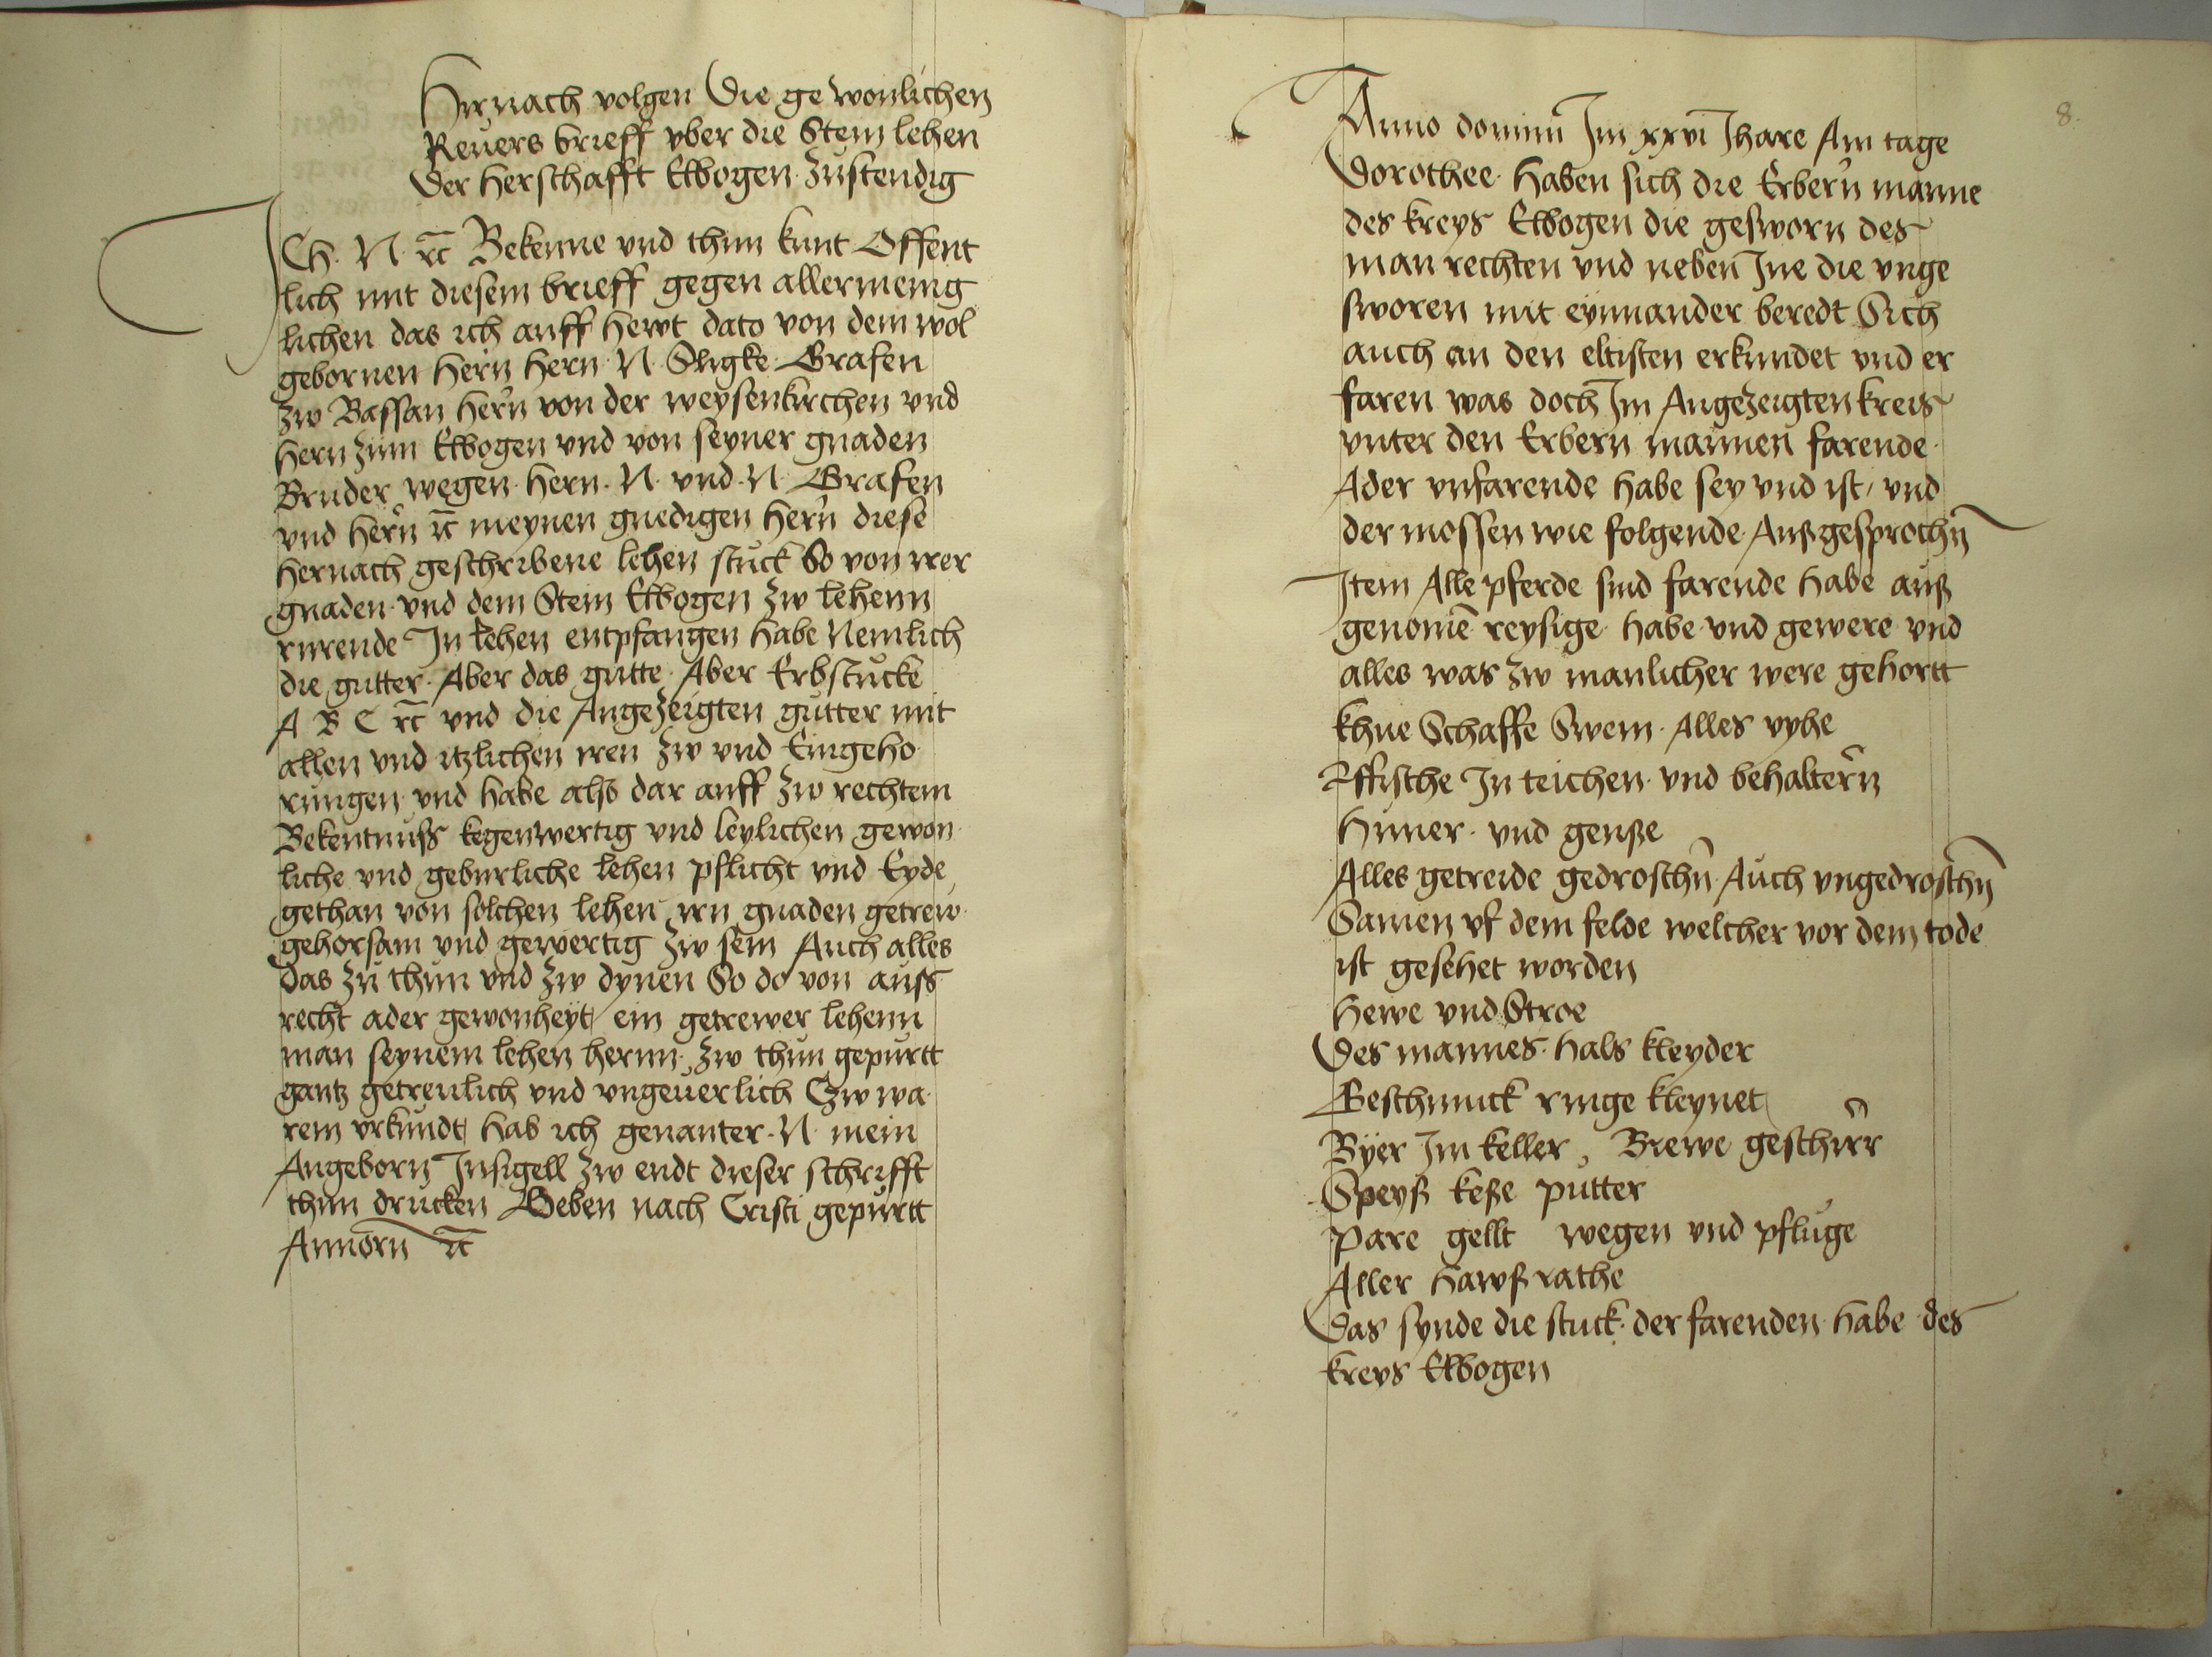 Hirnach volgen Die gewonlichen
Reuers brieff vber die Stein lehen
Der Herschafft Elbogen Zustendig
ICH. N. rc̄ Bekenne vnd thun kunt Offent
lich mit diesem brieff gegen allermenig
lichen das ich auff hewt dato von dem wol
gebornen Hern Hern N Sligke Grafen
zw Bassan Hern von der weysenkirchen vnd
Hern zum Elbogen vnd von seyner gnaden
Bruder wegen Hern. N. vnd. N. Grafen
vnd Hern rc̄ meynen gnedigen Hern diese
Hernach geschribene lehen stuck So von irer
gnaden vnd dem Stein Elbogen zw lehenn
rurende In lehen entpfangen habe Nemlich
die gutter. Aber das gutte. Aber Erbstucke
A B C rc̄ vnd die Angezeigten gutter mit
allen vnd itzlichen iren zw vnd Eingeho
rungen vnd habe also dar auff zw rechtem
Bekentnuss kegenwertig vnd leylichen gewon
liche vnd geburliche lehen pflicht vnd Eyde
gethan von solchen lehen irn gnaden getrew
gehorsam vnd gewertig zw sein Auch alles
das zu thun vnd zw dynen So do von auss
recht ader gewonheyt ein getrewer lehenn
man seynem lehen hernn. zw thun gepurtt
gantz getreulich vnd vngeuerlich Czw wa
rem vrkundt hab ich genanter. N. mein
Angeborn Insigell zw endt dieser schrifft
thun drucken Geben nach Cristi gepurtt
Annorn rc̄
8.
Anno domini Im xxvi Jhare Am tage
Dorothee Haben sich die Erbern manne
des kreys Elbogen die gesworn des
man rechten vnd neben Ine die vnge
sworen mit eynnander beredt Sich
auch an den eltisten erkundet vnd er
faren was doch Im Angezeigten kreis
vnter den Erbern mannen farende
Ader vnfarende habe sey vnd ist, vnd
der mossen wie folgende Außgesprochn̄
Item Alle pferde sind farende habe auß
genomē reysige habe vnd gewere vnd
alles was zw manlicher were gehortt
khue Schaffe Swein. Alles vyhe
Fffische In teichen vnd behaltern
Huner. vnd genße
Alles getreide gedroschn̄ Auch vngedroschn̄
Samen vf dem felde welcher vor dem tode
ist gesehet worden
Hewe vnd Stroe
Des mannes. hals kleyder
Geschmuck ringe kleynet
Byer Im keller, Brewe geschirr
Speyß keße putter
Pare gellt wegen vnd pfluge
Aller hawßrathe
Das synde die stuck. der farenden habe des
kreys Elbogen